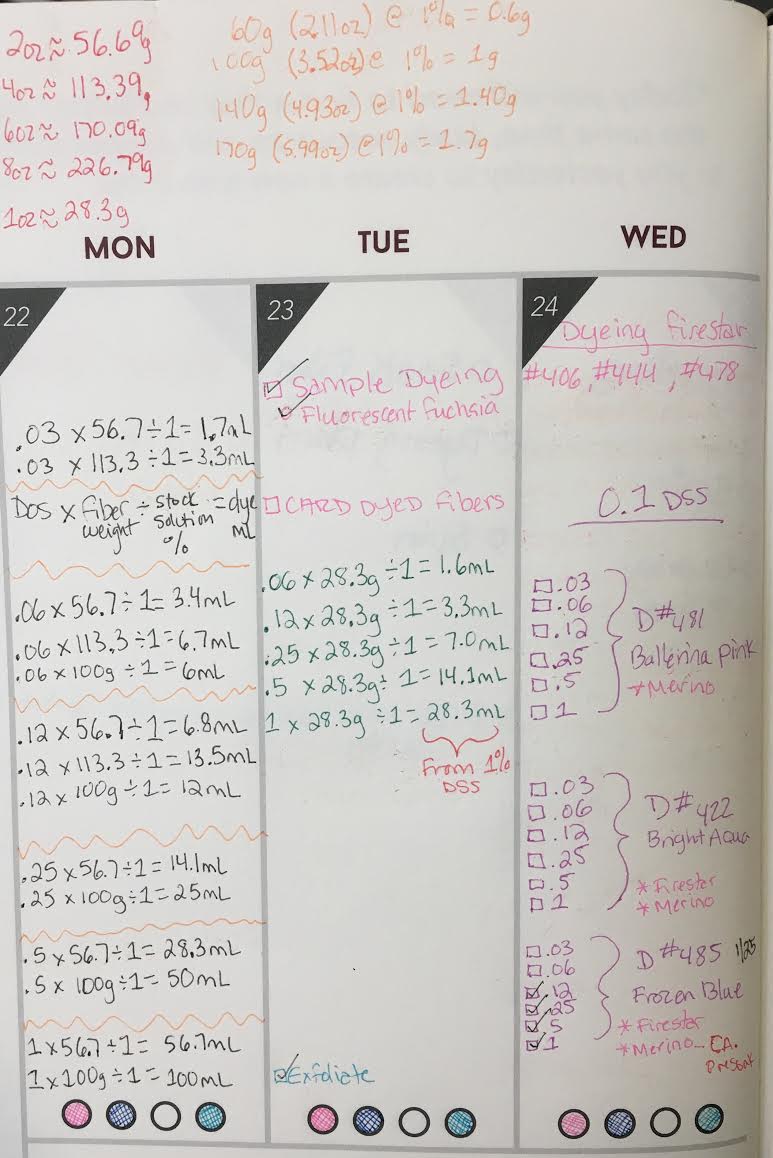 2oz ≈ 56.69g
4oz ≈ 113.39g
6oz ≈ 170.09g
8oz ≈ 226.79g
1oz ≈ 28.3g
60g (2.11oz) @ 1% = 0.6g
100g (3.52oz) @ 1% = 1g
140g (4.93oz) @ 1% = 1.40g
170g (5.99oz) @ 1% = 1.7g
MON
TUE
WED
22
.03 x 56.7 ÷ 1 = 1.7mL
.03 x 113.3 ÷ 1 = 3.3mL
DOS x Fiber weight ÷ stock solution % = dye mL
.06 x 56.7 ÷ 1 = 3.4mL
.06 x 113.3 ÷ 1 = 6.7mL
.06 x 100g ÷ 1 = 6mL
.12 x 56.7 ÷ 1 = 6.8mL
.12 x 113.3 ÷ 1 = 13.5mL
.12 x 100g ÷ 1 = 12mL
.25 x 56.7 ÷ 1 = 14.1mL
.25 x 100g ÷ 1 = 25mL
.5 x 56.7 ÷ 1 = 28.3mL
.5 x 100g ÷ 1 = 50mL
1 x 56.7 ÷ 1 = 56.7mL
1 x 100g ÷ 1 = 100mL
23
Sample Dyeing
Fluorescent Fuchsia
CARD Dyed Fibers
.06 x 28.3g ÷ 1 = 1.6mL
.12 x 28.3g ÷ 1 = 3.3mL
.25 x 28.3g ÷ 1 = 7.0mL
.5 x 28.3g ÷ 1 = 14.1mL
1 x 28.3g ÷ 1 = 28.3mL
From 1%
DSS
Exfoliate
24
Dyeing Firestar
#406, #444, #478
0.1 DSS
.03
.06
.12
.25
.5
1
D#481
Ballerina Pink
*Merino
.03
.06
.12
.25
.5
1
D#422
Bright Aqua
*Firestar
*Merino
.03
.06
.12
.25
.5
1
D#485 1/25
Frozen Blue
*Firestar
*Merino - CA.
present